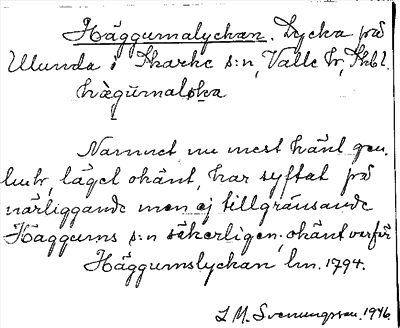 Häggumalyckan. Lycka på
Ulunda i Skarke s:n, Valle hr, Skbl.
Namnet nu mest känt gen.
lmhr, läget okänt, har syftat på
närliggande men ej tillgränsande
Häggums s:n säkerligen; okänt varför
Häggumslyckan lm. 1794.
L M. Svenungsson. 1946.